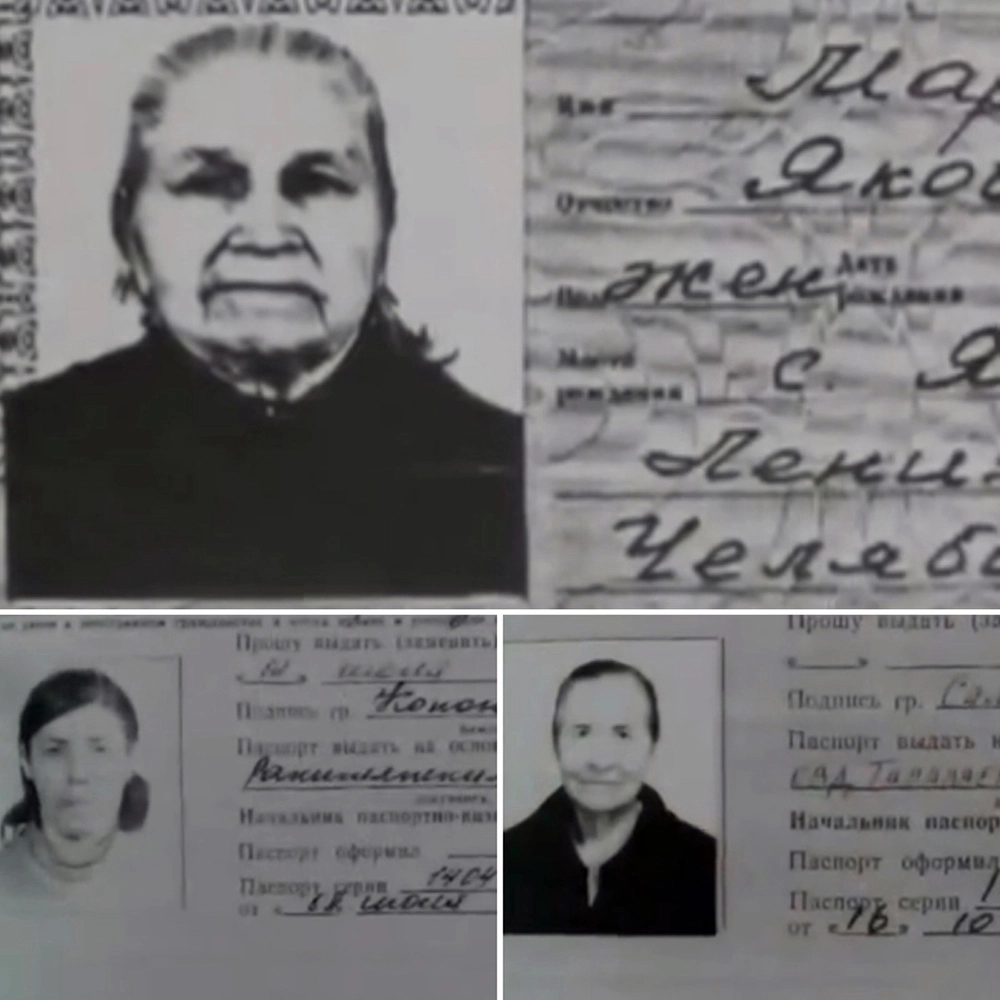 Имя Мар
Отчество Яков
Пол жен Дата рождения
Место рождения с. Я
Ленин
Челяб
Прошу выдать (заменить)
Подпись гр. Конон
Паспорт выдать на осно
Начальник паспортно-виз
Паспорт оформил
Паспорт серии 1404
от « 18 июля
Прошу выдать (за
Подпись гр. Са
Паспорт выдать н
Начальник паспор
Паспорт оформил
Паспорт серии 1
от «16» 10